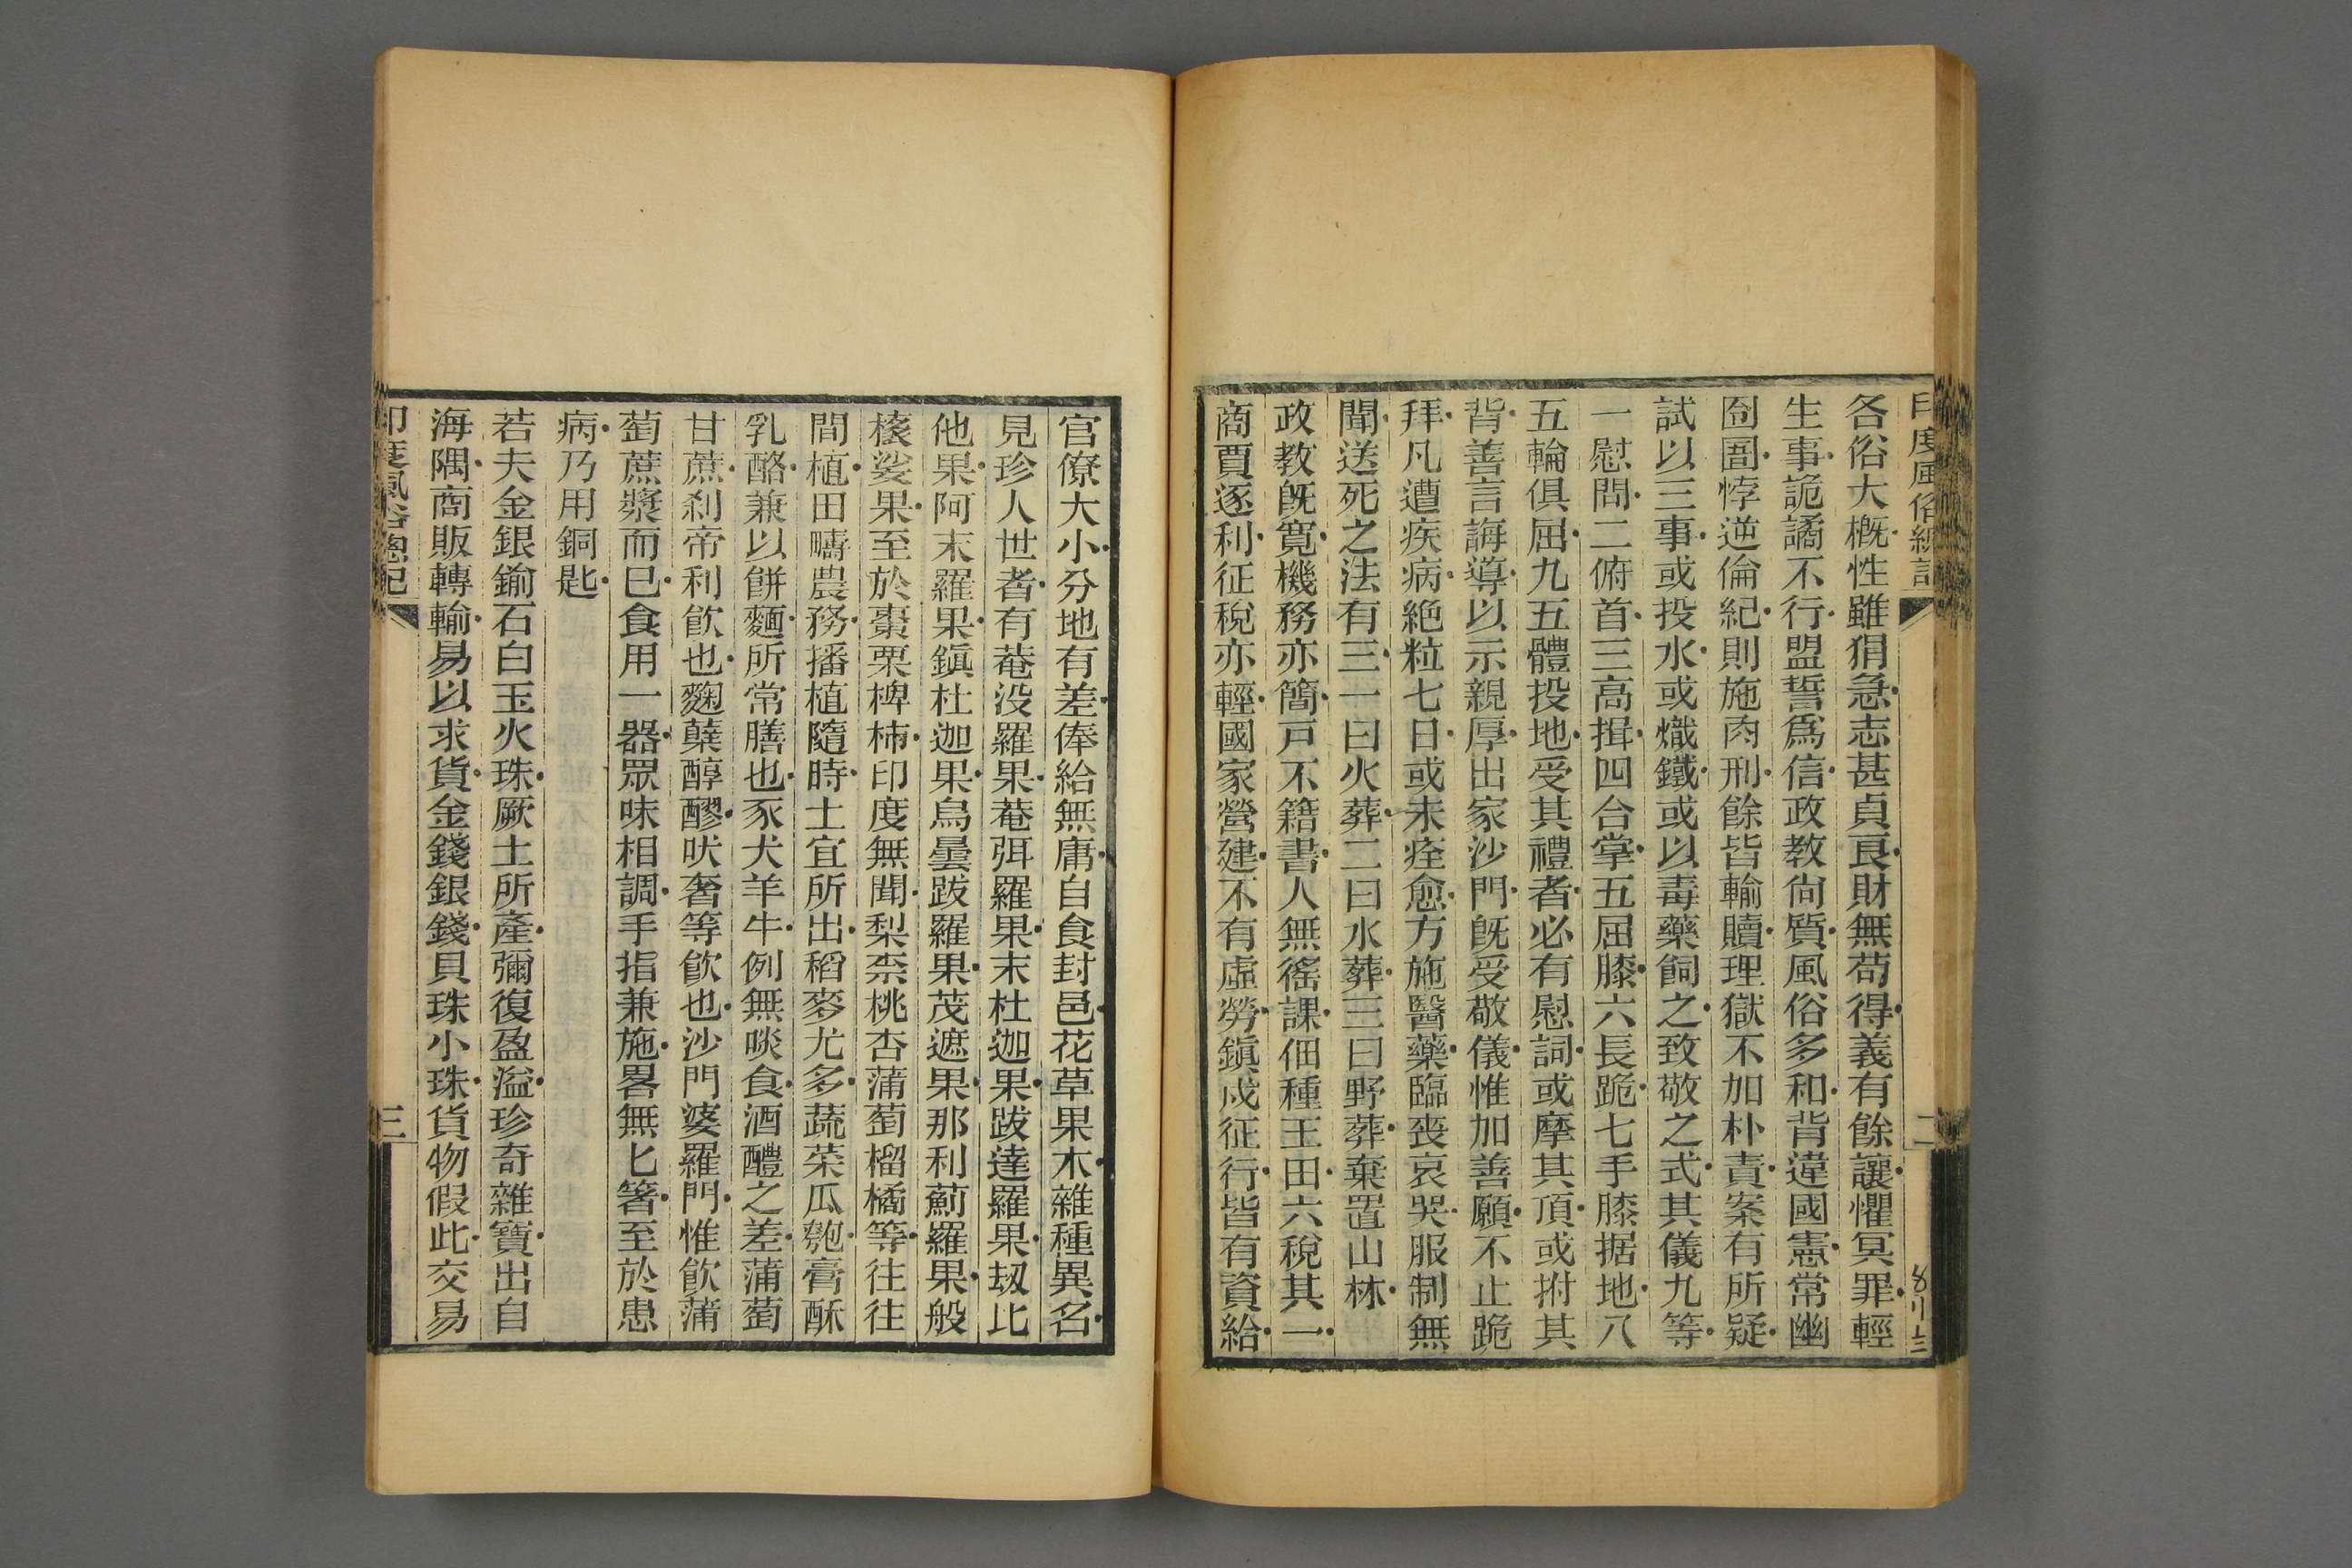 印度風俗總記
二
各俗大概性雖狷急志甚貞良財無苟得義有餘讓懼冥罪輕
生事詭譎不行盟誓爲信政教尙質風俗多和背違國憲常幽
囹圄悖逆倫紀則施肉刑餘皆輸贖理獄不加朴責案有所疑
試以三事或投水或熾鐵或以毒藥飼之致敬之式其儀九等
一慰問二俯首三高揖四合掌五屈膝六長跪七手膝据地八
五輪俱屈九五體投地受其禮者必有慰詞或摩其頂或拊其
背善言誨導以示親厚出家沙門旣受敬儀惟加善願不止跪
拜凡遭疾病絶粒七日或未痊愈方施醫藥臨喪哀哭服制無
聞送死之法有三一曰火葬二曰水葬三曰野葬棄置山林
政教旣寬機務亦簡戸不籍書人無徭課佃種王田六稅其一
商賈逐利征稅亦輕國家營建不有虛勞鎭戍征行皆有資給
官僚大小分地有差俸給無庸自食封邑花草果木雜種異名
見珍人世者有菴没羅果菴弭羅果末杜迦果跋達羅果劫比
他果阿末羅果鎭杜迦果烏曇跋羅果茂遮果那利薊羅果般
橠娑果至於棗栗椑柿印度無聞梨柰桃杏蒲萄榴橘等往往
間植田疇農務播植隨時土宜所出稻麥尤多蔬菜瓜匏膏酥
乳酪兼以餅麵所常膳也豕犬羊牛例無啖食酒醴之差蒲萄
甘蔗剎帝利飮也麴蘖醇醪吠奢等飮也沙門婆羅門惟飮蒲
萄蔗漿而巳食用一器眾味相調手指兼施畧無匕箸至於患
病乃用銅匙
若夫金銀鍮石白玉火珠厥土所產彌復盈溢珍奇雜寶出自
海隅商販轉輸易以求貨金錢銀錢貝珠小珠貨物假此交易
印度風俗總記
三